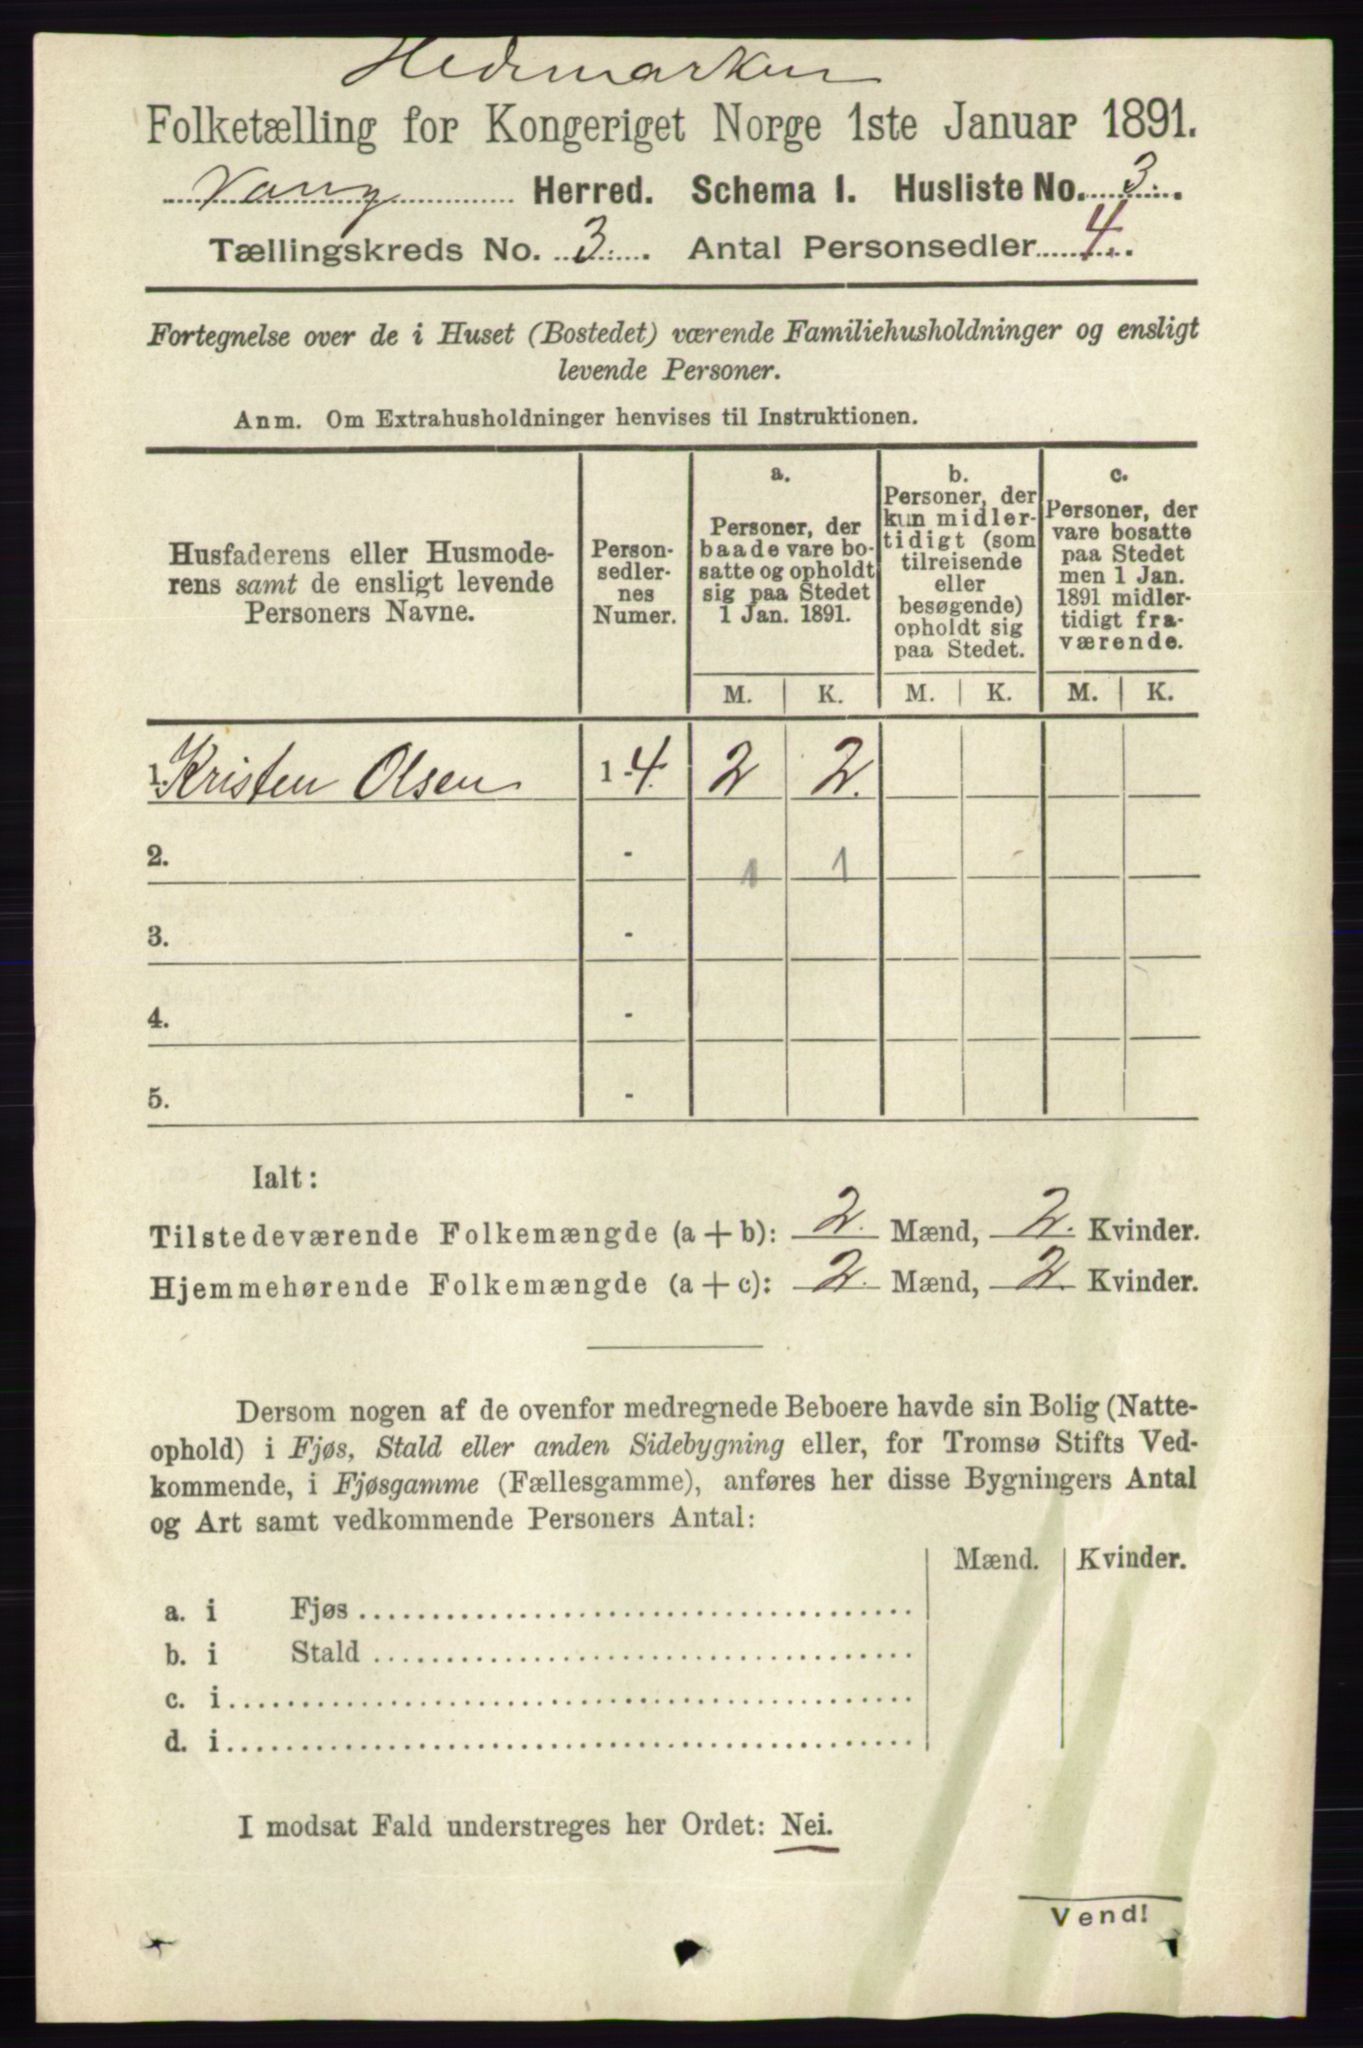 Hedemarken
Folketælling for Kongeriget Norge 1ste Januar 1891.
Vang Herred. Schema I. Husliste No. 3.
Tællingskreds No. 3. Antal Personsedler 4.
Fortegnelse over de i Huset (Bostedet) værende Familiehusholdninger og ensligt
levende Personer.
Anm. Om Extrahusholdninger henvises til Instruktionen.
Husfaderens eller Husmode-
rens samt de ensligt levende
Personers Navne.
Person-
sedler-
nes
Numer.
a.
Personer, der
baade vare bo-
satte og opholdt
sig paa Stedet
1 Jan. 1891.
b.
Personer, der
kun midler-
tidigt (som
tilreisende
eller
besøgende)
opholdt sig
paa Stedet.
c.
Personer, der
vare bosatte
paa Stedet
men 1 Jan.
1891 midler-
tidigt fra-
værende.
M. K. M. K. M. K.
1. Kristen Olsen 1-4. 2 2.
2. - 1 1
3. -
4. -
5. -
Ialt:
Tilstedeværende Folkemængde (a + b): 2. Mænd, 2. Kvinder.
Hjemmehørende Folkemængde (a + c): 2. Mænd, 2. Kvinder.
Dersom nogen af de ovenfor medregnede Beboere havde sin Bolig (Natte-
ophold) i Fjøs, Stald eller anden Sidebygning eller, for Tromsø Stifts Ved-
kommende, i Fjøsgamme (Fællesgamme), anføres her disse Bygningers Antal
og Art samt vedkommende Personers Antal:
Mænd. Kvinder.
a. i Fjøs
b. i Stald
c. i
d. i
I modsat Fald understreges her Ordet: Nei.
Vend!